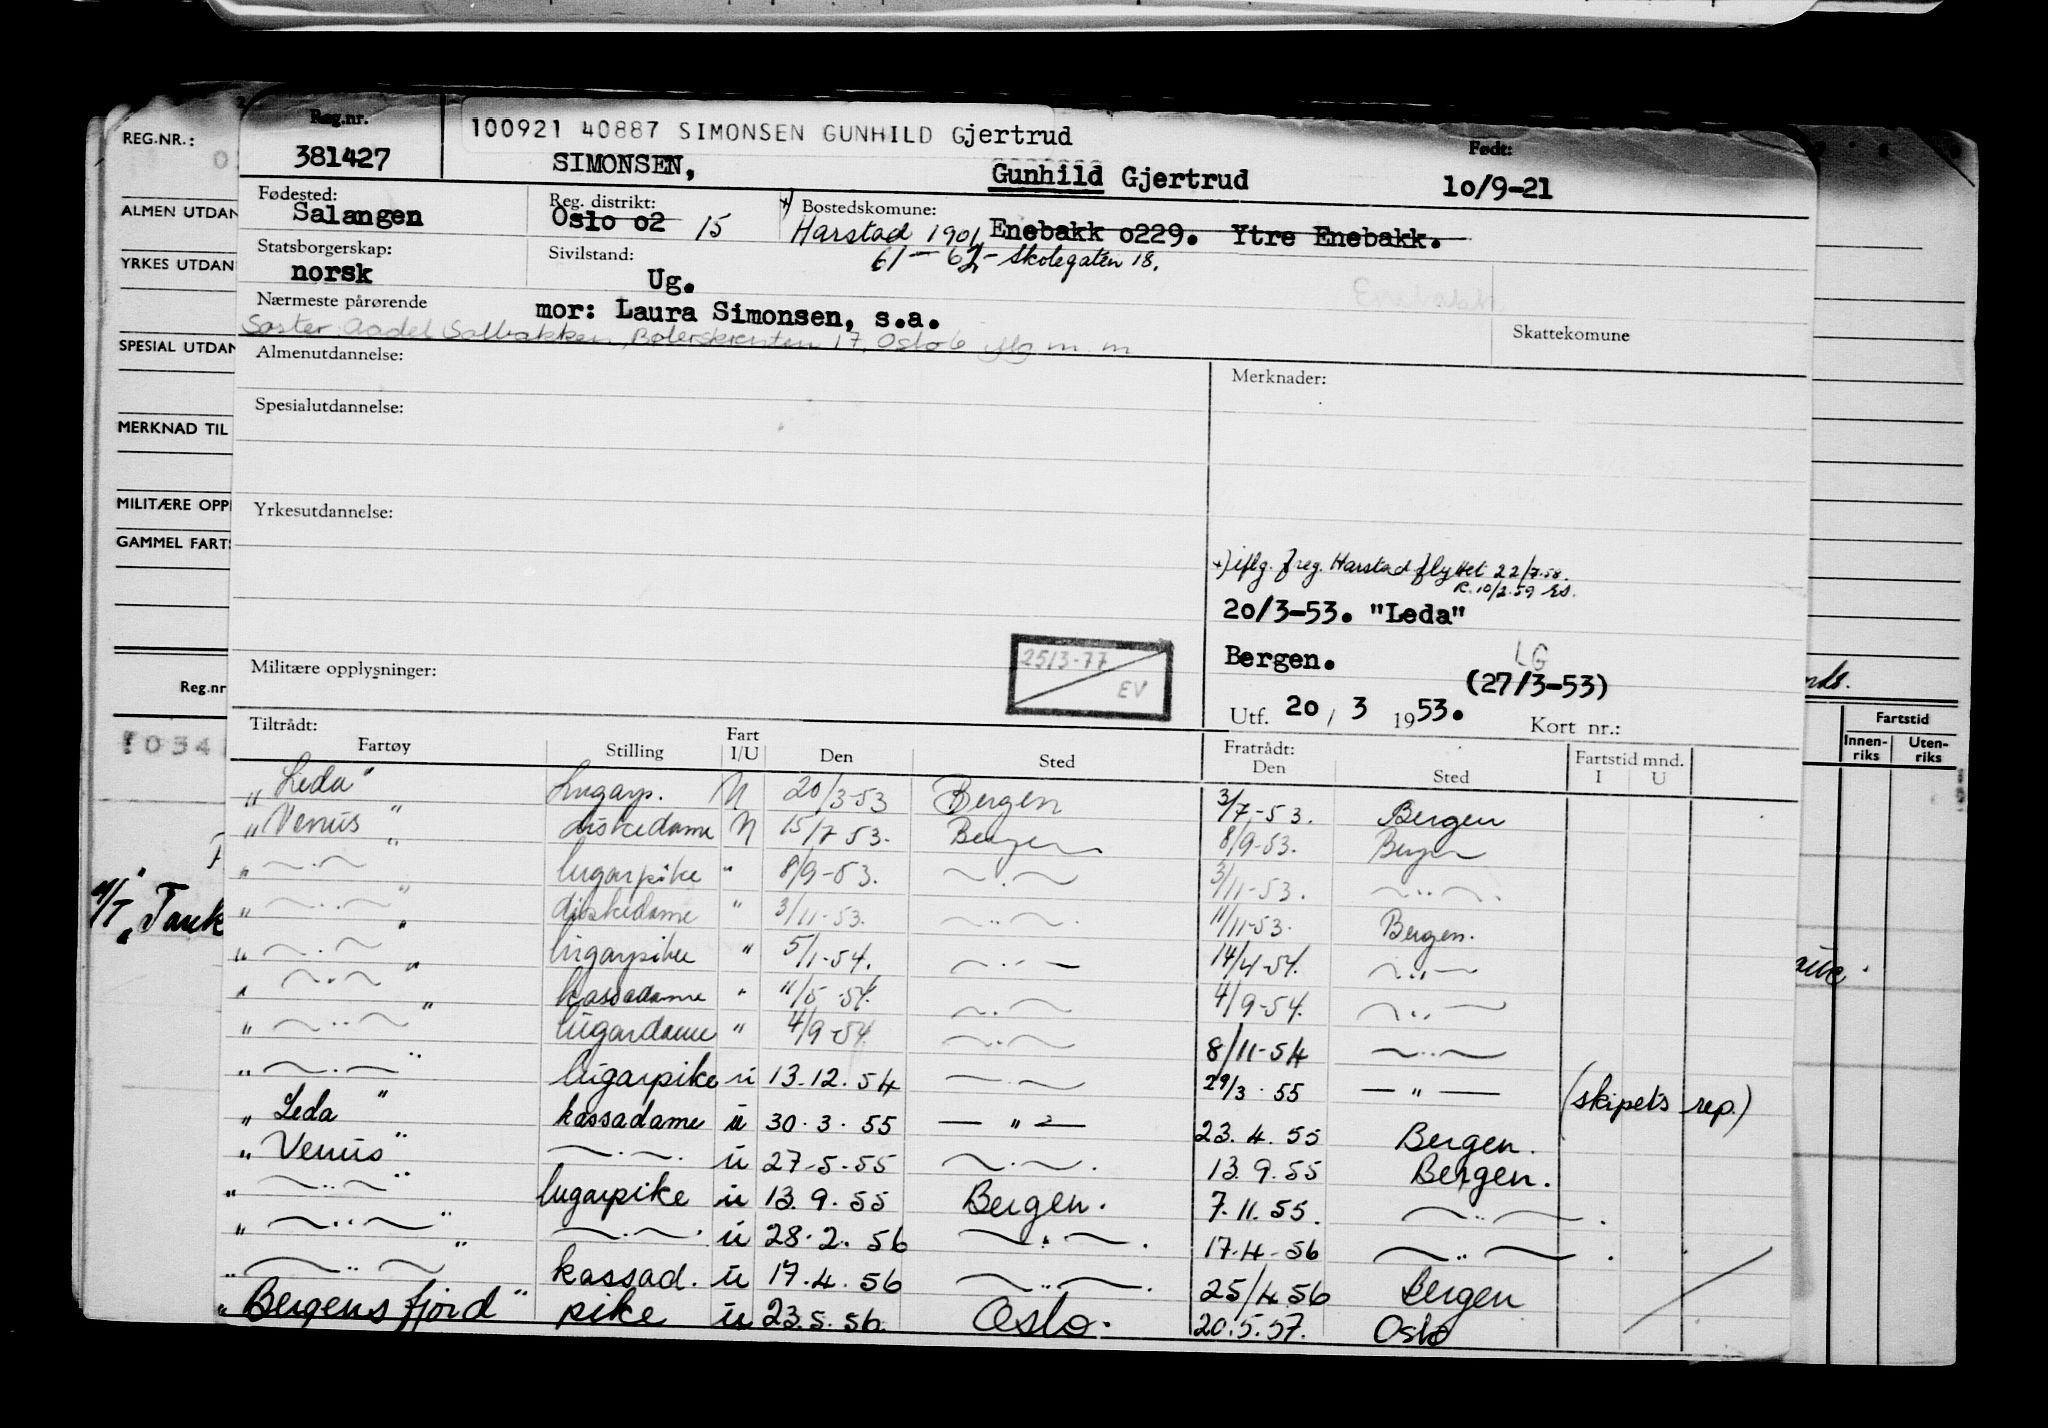 REG.NR.:
ALMEN UTDAN
YRKES UTDAN
SPESIAL UTDAN
MERKNAD TIL
MILITÆRE OPP
GAMMEL FARTS
Reg.nr
M/T „Tank
Fartstid
Innen-riks Uten-riks
Reg.nr. 381427
100921 40887 SIMONSEN GUNHILD Gjertrud
SIMONSEN, Gunhild Gjertrud
Født: 10/9-21
Fødested: Salangen
Reg. distrikt: Oslo 02 15
Bostedskommune: Enebakk 0229. Ytre Enebakk.
Harstad 1901
61-62- Skolegaten 18.
Statsborgerskap: norsk
Sivilstand: Ug.
Nærmeste pårørende mor: Laura Simonsen, s.a.
Søster: Aadel Solbakken, Bølerskrenten 17, Oslo 6 iflg m.m
Skattekomune
Almenutdannelse:
Merknader:
Spesialutdannelse:
Yrkesutdannelse:
+) iflg. freg. Harstad flyttet 22/7.58.
R. 10/2.59 ES.
20/3-53. "Leda"
Bergen. LG
(27/3-53)
Militære opplysninger:
25/3-77
EV
Utf. 20 / 3 1953. Kort nr.:
Tiltrådt: Fratrådt: Fartstid mnd.
Fartøy Stilling Fart I/U Den Sted Den Sted I U
„Leda" Lugarp. U 20/3-53 Bergen 3/7-53. Bergen
„Venus" diskedame U 15/7 53. Bergen 8/9-53. Bergen
„ ~.~ " lugarpike " 8/9-53. ~.~ 3/11-53. ~..~.
„ ~..~ " diskedame " 3/11-53. ~..~. 11/11-53. Bergen.
„ ~.~ " lugarpike " 5/1-54. ~..~ 14/4-54. ~..~
„ ~.~ " kassadame " 11/5-54. ~..~ 4/9-54. ~..~
„ ~..~ " lugardame " 4/9-54 ~..~ 8/11-54 ~..~
„ ~.~ " lugarpike u 13.12.54 ~.~ 29/3.55 — " — (skipets rep.)
„ Leda " kassadame u 30.3.55 — " — 23.4.55 Bergen.
„ Venus" ~.~. u 27-5-55 ~.~. 13.9.55 Bergen.
„ ~..~ " lugarpike u 13.9.55 Bergen. 7.11.55. ~..~.
„ ~..~ " ~.~. u 28.2.56 ~.~. 17-4-56 ~..~.
„ ~..~ " kassad. u 17.4.56 ~..~. 25/4.56 Bergen
„Bergensfjord" pike u 23.5.56. Oslo. 20.5.57. Oslo